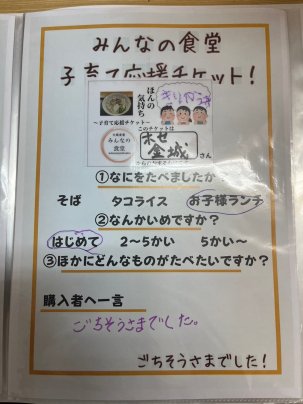 みんなの食堂
子育て応援チケット!
ほんの
気持ち
~子育て応援チケット~
みんなの
食堂
このチケットは
金城
さん
①なにをたべましたか
そば タコライス お子様ランチ
②なんかいめですか?
はじめて 2~5かい 5かい~
③ほかにどんなものがたべたいですか?
購入者へ一言
ごちそうさまでした。
ごちそうさまでした!